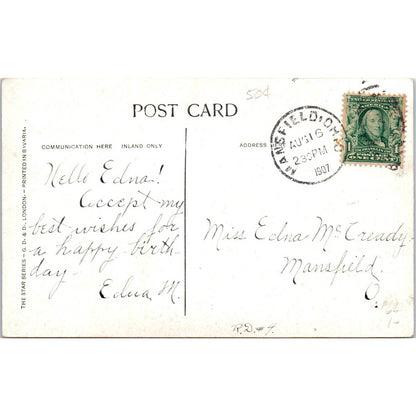 50¢
POST CARD
COMMUNICATION HERE INLAND ONLY
ADDRESS
THE STAR SERIES – G. D. & D., LONDON. – PRINTED IN BAVARIA.
Hello Edna!
Accept my
best wishes for
a happy birth
day.
Edna M.
MANSFIELD, OHIO
AUG 16
2:30 PM
1907
ONE CENT
Miss Edna McCready
Mansfield
O.
R.D.#4.